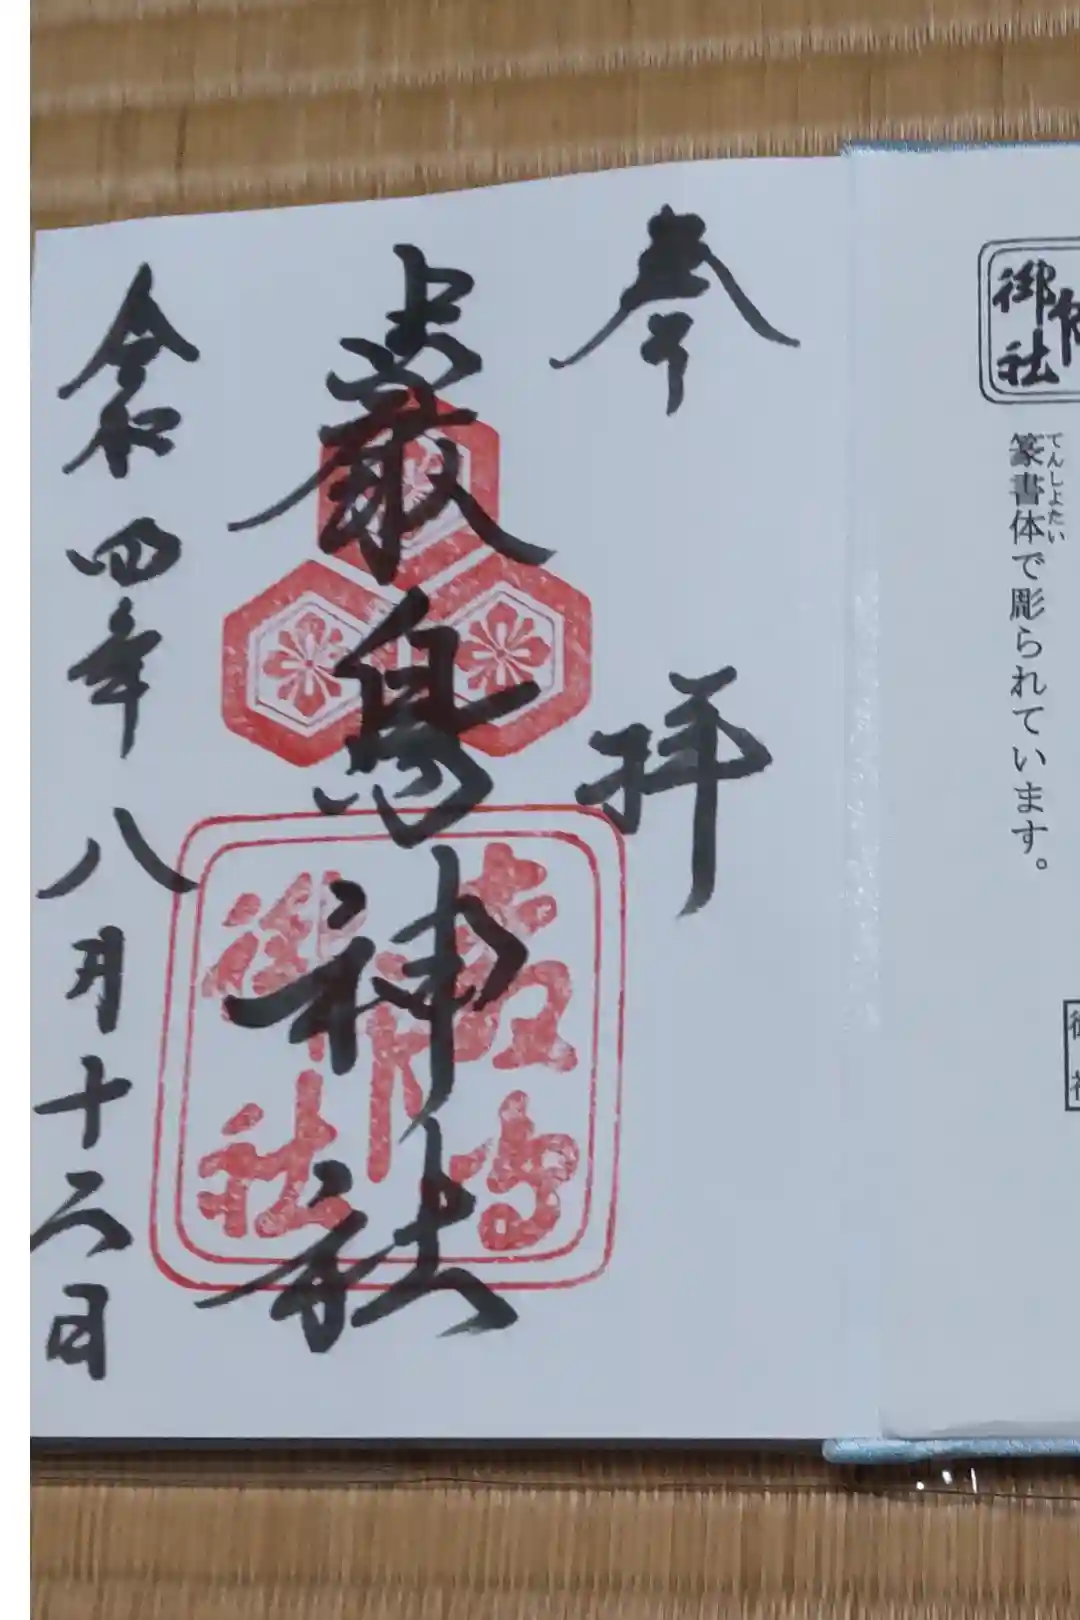 御
社
篆書体で彫られています。
てんしょたい
奉
拝
嚴島神社
令和四年八月十六日
御
社